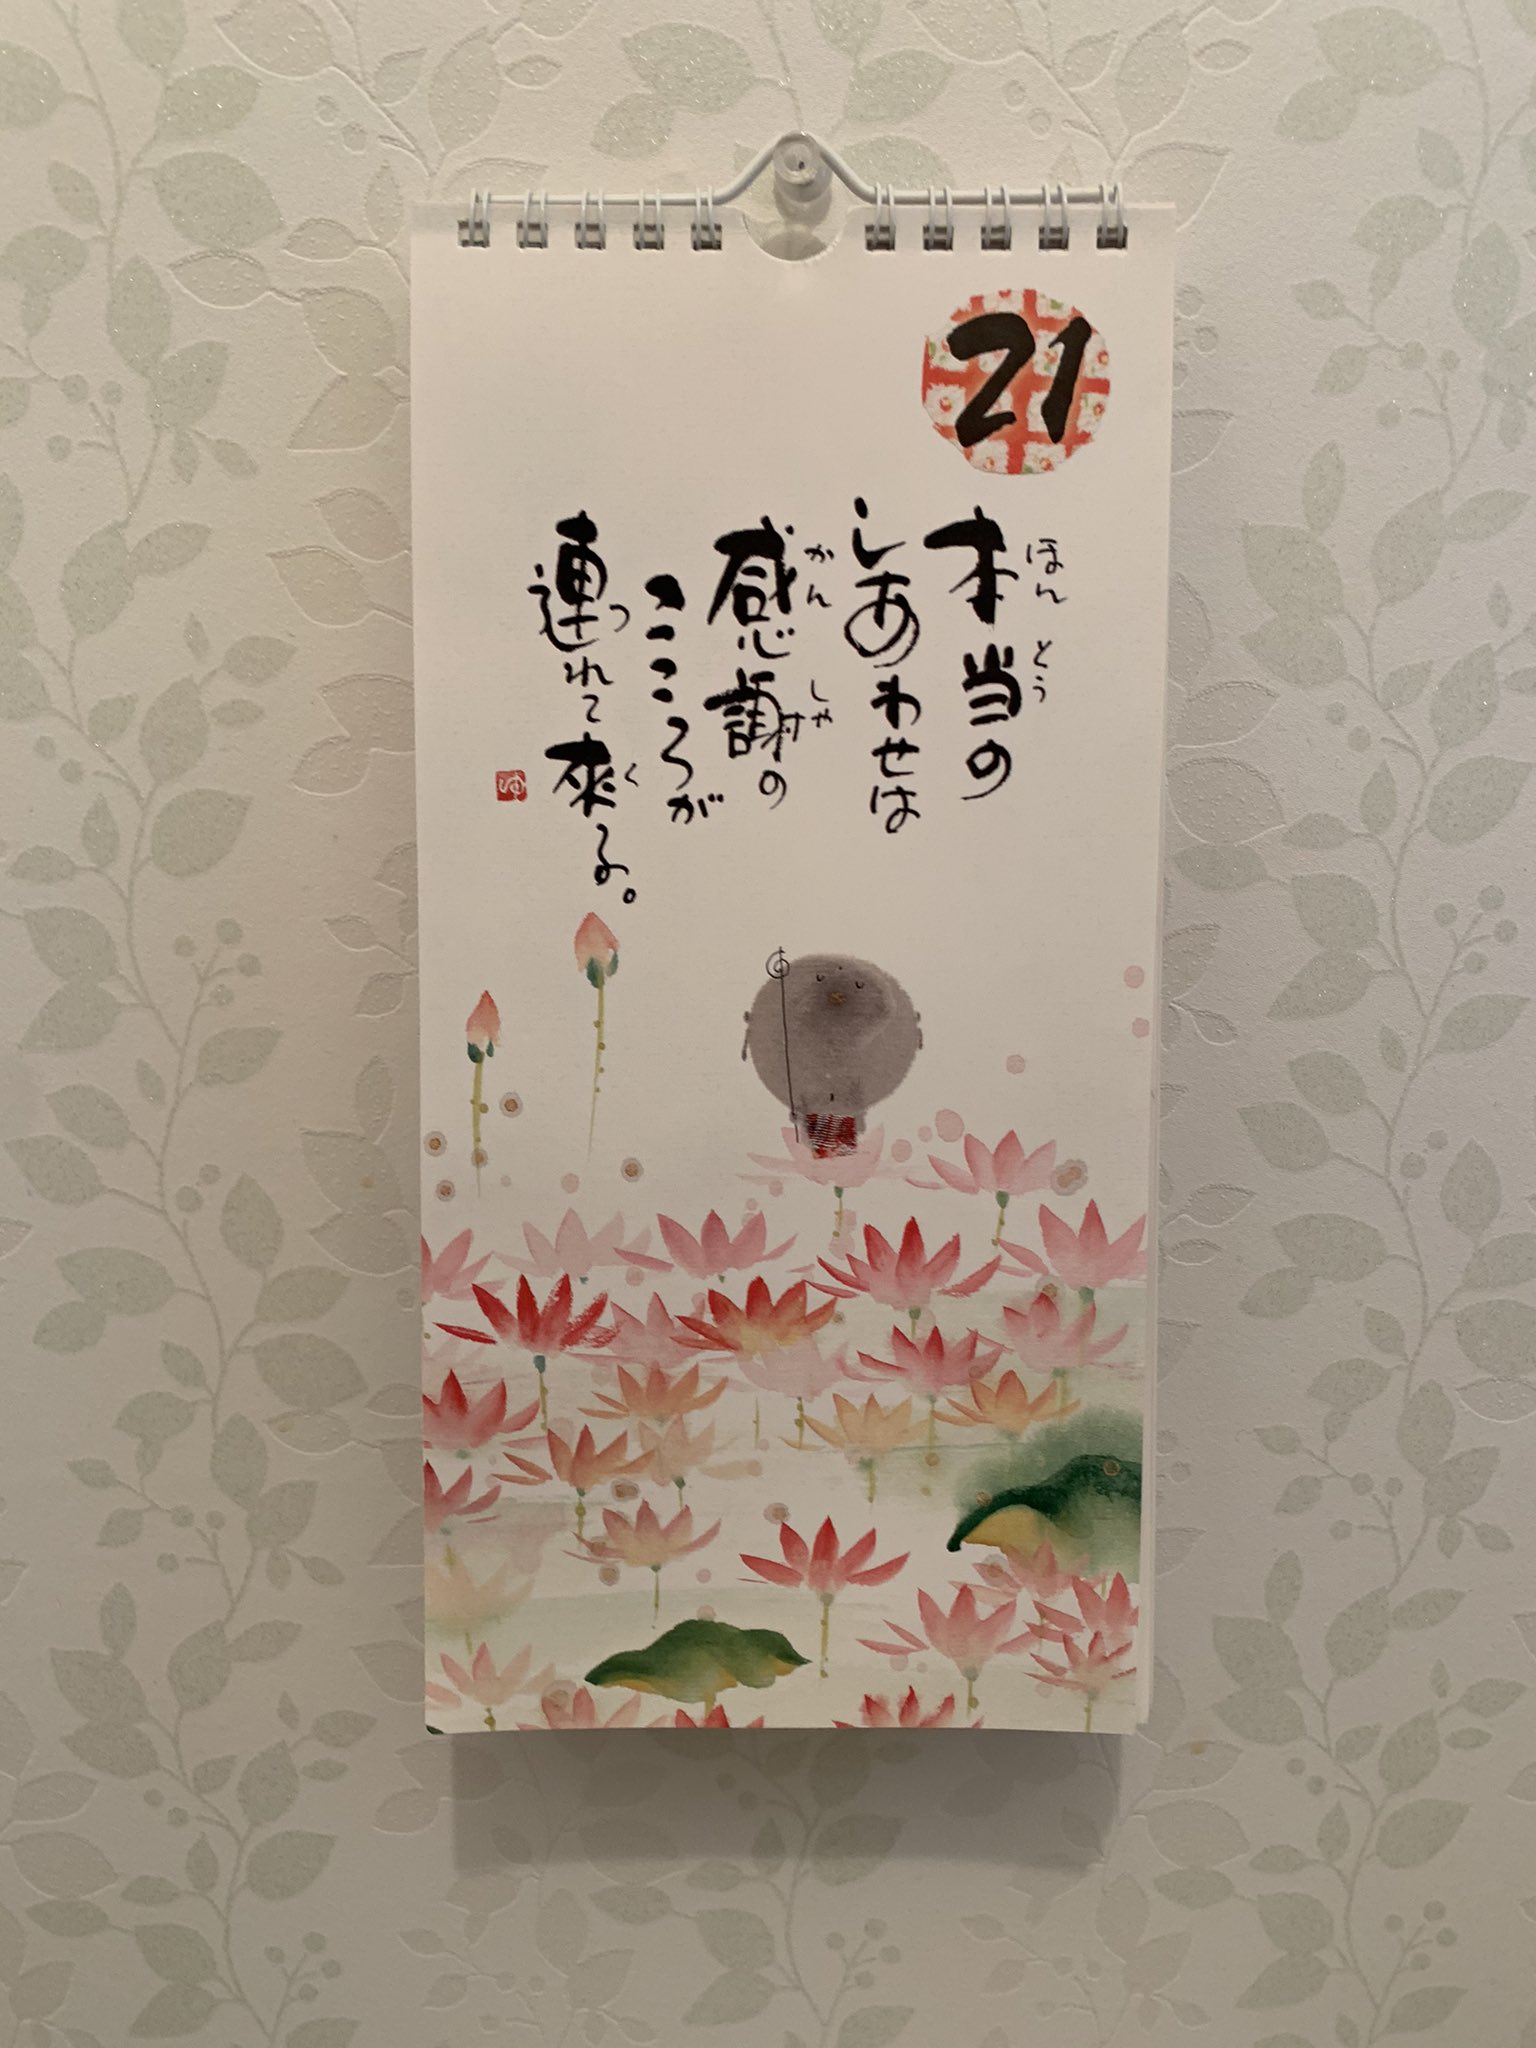 21
本当の
しあわせは
感謝の
こころが
連れて来る。
ほん
とう
かん
しゃ
つ
く
ゆ